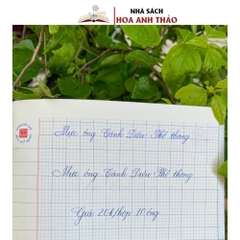 NHÀ SÁCH
HOA ANH THẢO
Mực ống Cánh Diều Phổ thông
Mực ống Cánh Diều Phổ thông
Giá 20k/hộp 10 ống